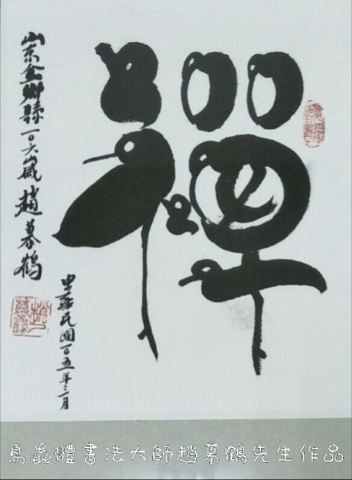 禪
山東金鄉縣一〇六歲趙慕鶴
中華民國一百五年二月
鳥蟲體書法大師趙慕鶴先生作品